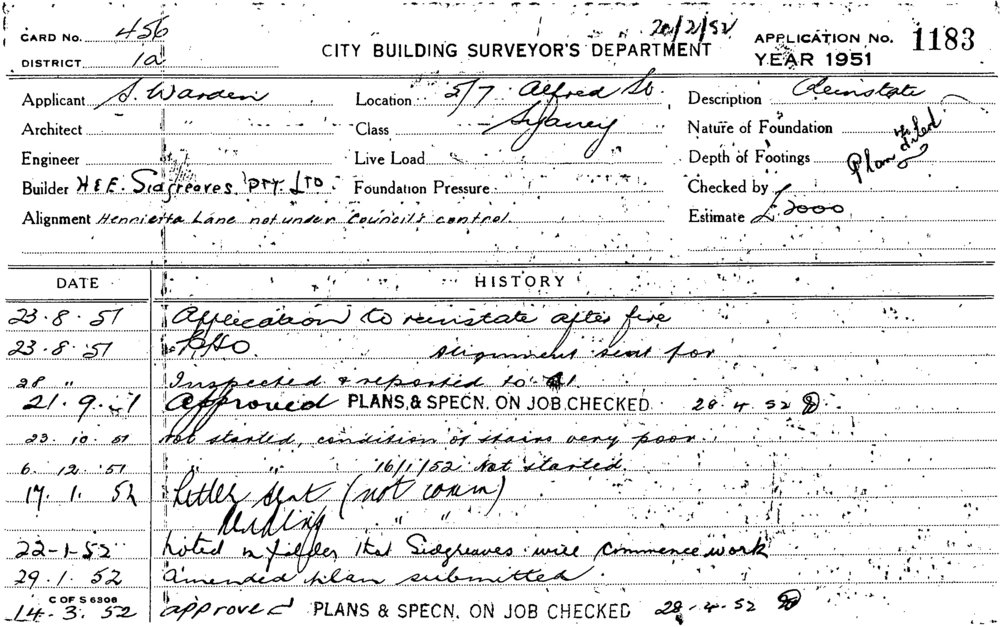 CARD No. 456
20/2/52
DISTRICT 1a
CITY BUILDING SURVEYOR'S DEPARTMENT
APPLICATION No. 1183
YEAR 1951
Applicant S. Warden
Location 5/7 Alfred St.
Description Reinstate
Architect
Class Sydney
Nature of Foundation
Engineer
Live Load
Depth of Footings
Plan filed
Builder H & E. Sidgreaves PTY. LTD.
Foundation Pressure
Checked by
Alignment Henrietta Lane not under Council's control.
Estimate £2000
DATE HISTORY
23.8.51 Application to reinstate after fire
23.8.51 P.H.O. Alignment sent for
28 " Inspected & reported to
21.9.51 Approved PLANS & SPECN. ON JOB CHECKED 28.4.52
23.10.51 Not started, condition of stairs very poor.
6.12.51 " " 16/1/52 Not started
17.1.52 Letter sent (not comm)
" "
22-1-52 Noted in folder that Sidgreaves will commence work
29.1.52 Amended plan submitted.
C OF S 6306
14.3.52 approved PLANS & SPECN. ON JOB CHECKED 28-4-52